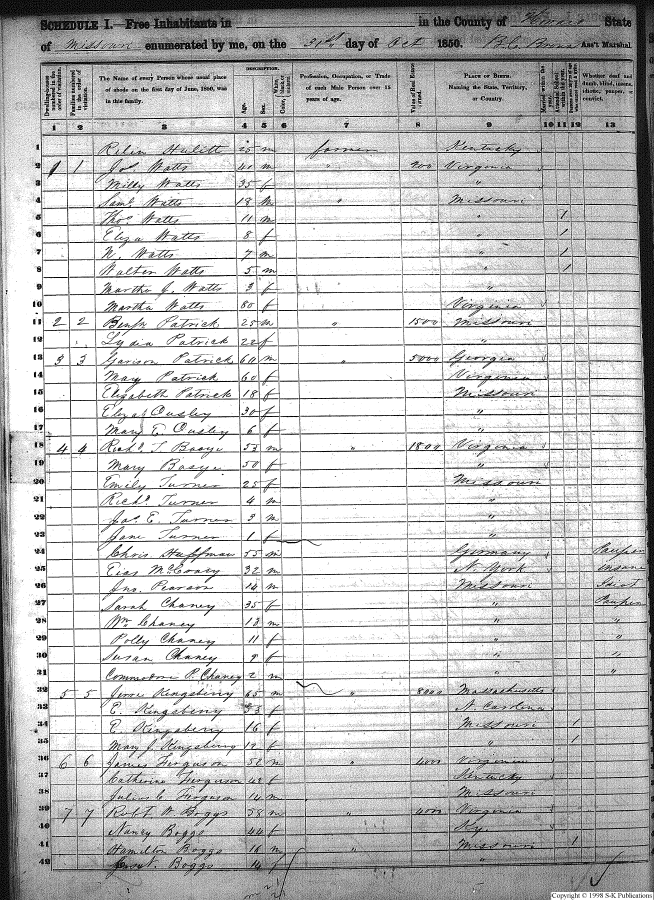 SCHEDULE I.—Free Inhabitants in in the County of State
of Missouri enumerated by me, on the 31st day of Oct 1850. Ass't Marshal
DESCRIPTION.
Dwelling-houses numbered in the order of visitation.
Families numbered in the order of visitation.
The Name of every Person whose usual place of abode on the first day of June, 1850, was in this family.
Age.
Sex.
Color, White, black, or mulatto.
Profession, Occupation, or Trade of each Male Person over 15 years of age.
Value of Real Estate owned.
PLACE OF BIRTH. Naming the State, Territory, or Country.
Married within the year.
Attended School within the year.
Whether deaf and dumb, blind, insane, idiotic, pauper, or convict.
1 2 3 4 5 6 7 8 9 10 11 12 13
1 25 m farmer Kentucky
2 1 1 Jos. Watts 41 m " 200 Virginia
3 Milly Watts 35 f "
4 Saml. Watts 18 m " Missouri
5 Thos. Watts 11 m " 1
6 Eliza Watts 8 f " 1
7 W. Watts 7 m " 1
8 Walter Watts 5 m " 1
9 Martha J. Watts 3 f "
10 Martha Watts 80 f Virginia
11 2 2 Patrick 25 m " 1500 Missouri
12 Lydia Patrick 22 f "
13 3 3 Garison Patrick 60 m " 5000 Georgia
14 Mary Patrick 60 f Virginia
15 Elizabeth Patrick 18 f Missouri
16 Eliza Ousley 30 f "
17 Mary E. Ousley 6 f "
18 4 4 Richd. T Basye 53 m " 1800 Virginia
19 Mary Basye 50 f "
20 Emily Turner 25 f Missouri
21 Richd. Turner 4 m "
22 Jas. E. Turner 3 m "
23 Jane Turner 1 f "
24 Chris Huffman 55 m Germany Pauper
25 32 m N. York insane
26 Jno. Pearson 14 m Missouri
27 Sarah Chaney 35 f " Pauper
28 Wm Chaney 13 m " "
29 Polly Chaney 11 f " "
30 Susan Chaney 9 f " "
31 Commodore P. Chaney 2 m " "
32 5 5 Kingsberry 65 m " 8000 Massachusetts
33 E. Kingsberry 53 f N Carolina
34 E. Kingsberry 16 f Missouri 1
35 Mary J. Kingsberry 12 f " 1
36 6 6 James Ferguson 52 m " 4000 Virginia
37 Catherine Ferguson 42 f Kentucky
38 Julius C. Ferguson 14 m Missouri
39 7 7 Robt W Boggs 58 m " 4000 Virginia
40 Nancy Boggs 44 f Ky.
41 Hamilton Boggs 16 m " Missouri 1
42 Boggs 14 f "
Copyright © 1998 S-K Publications